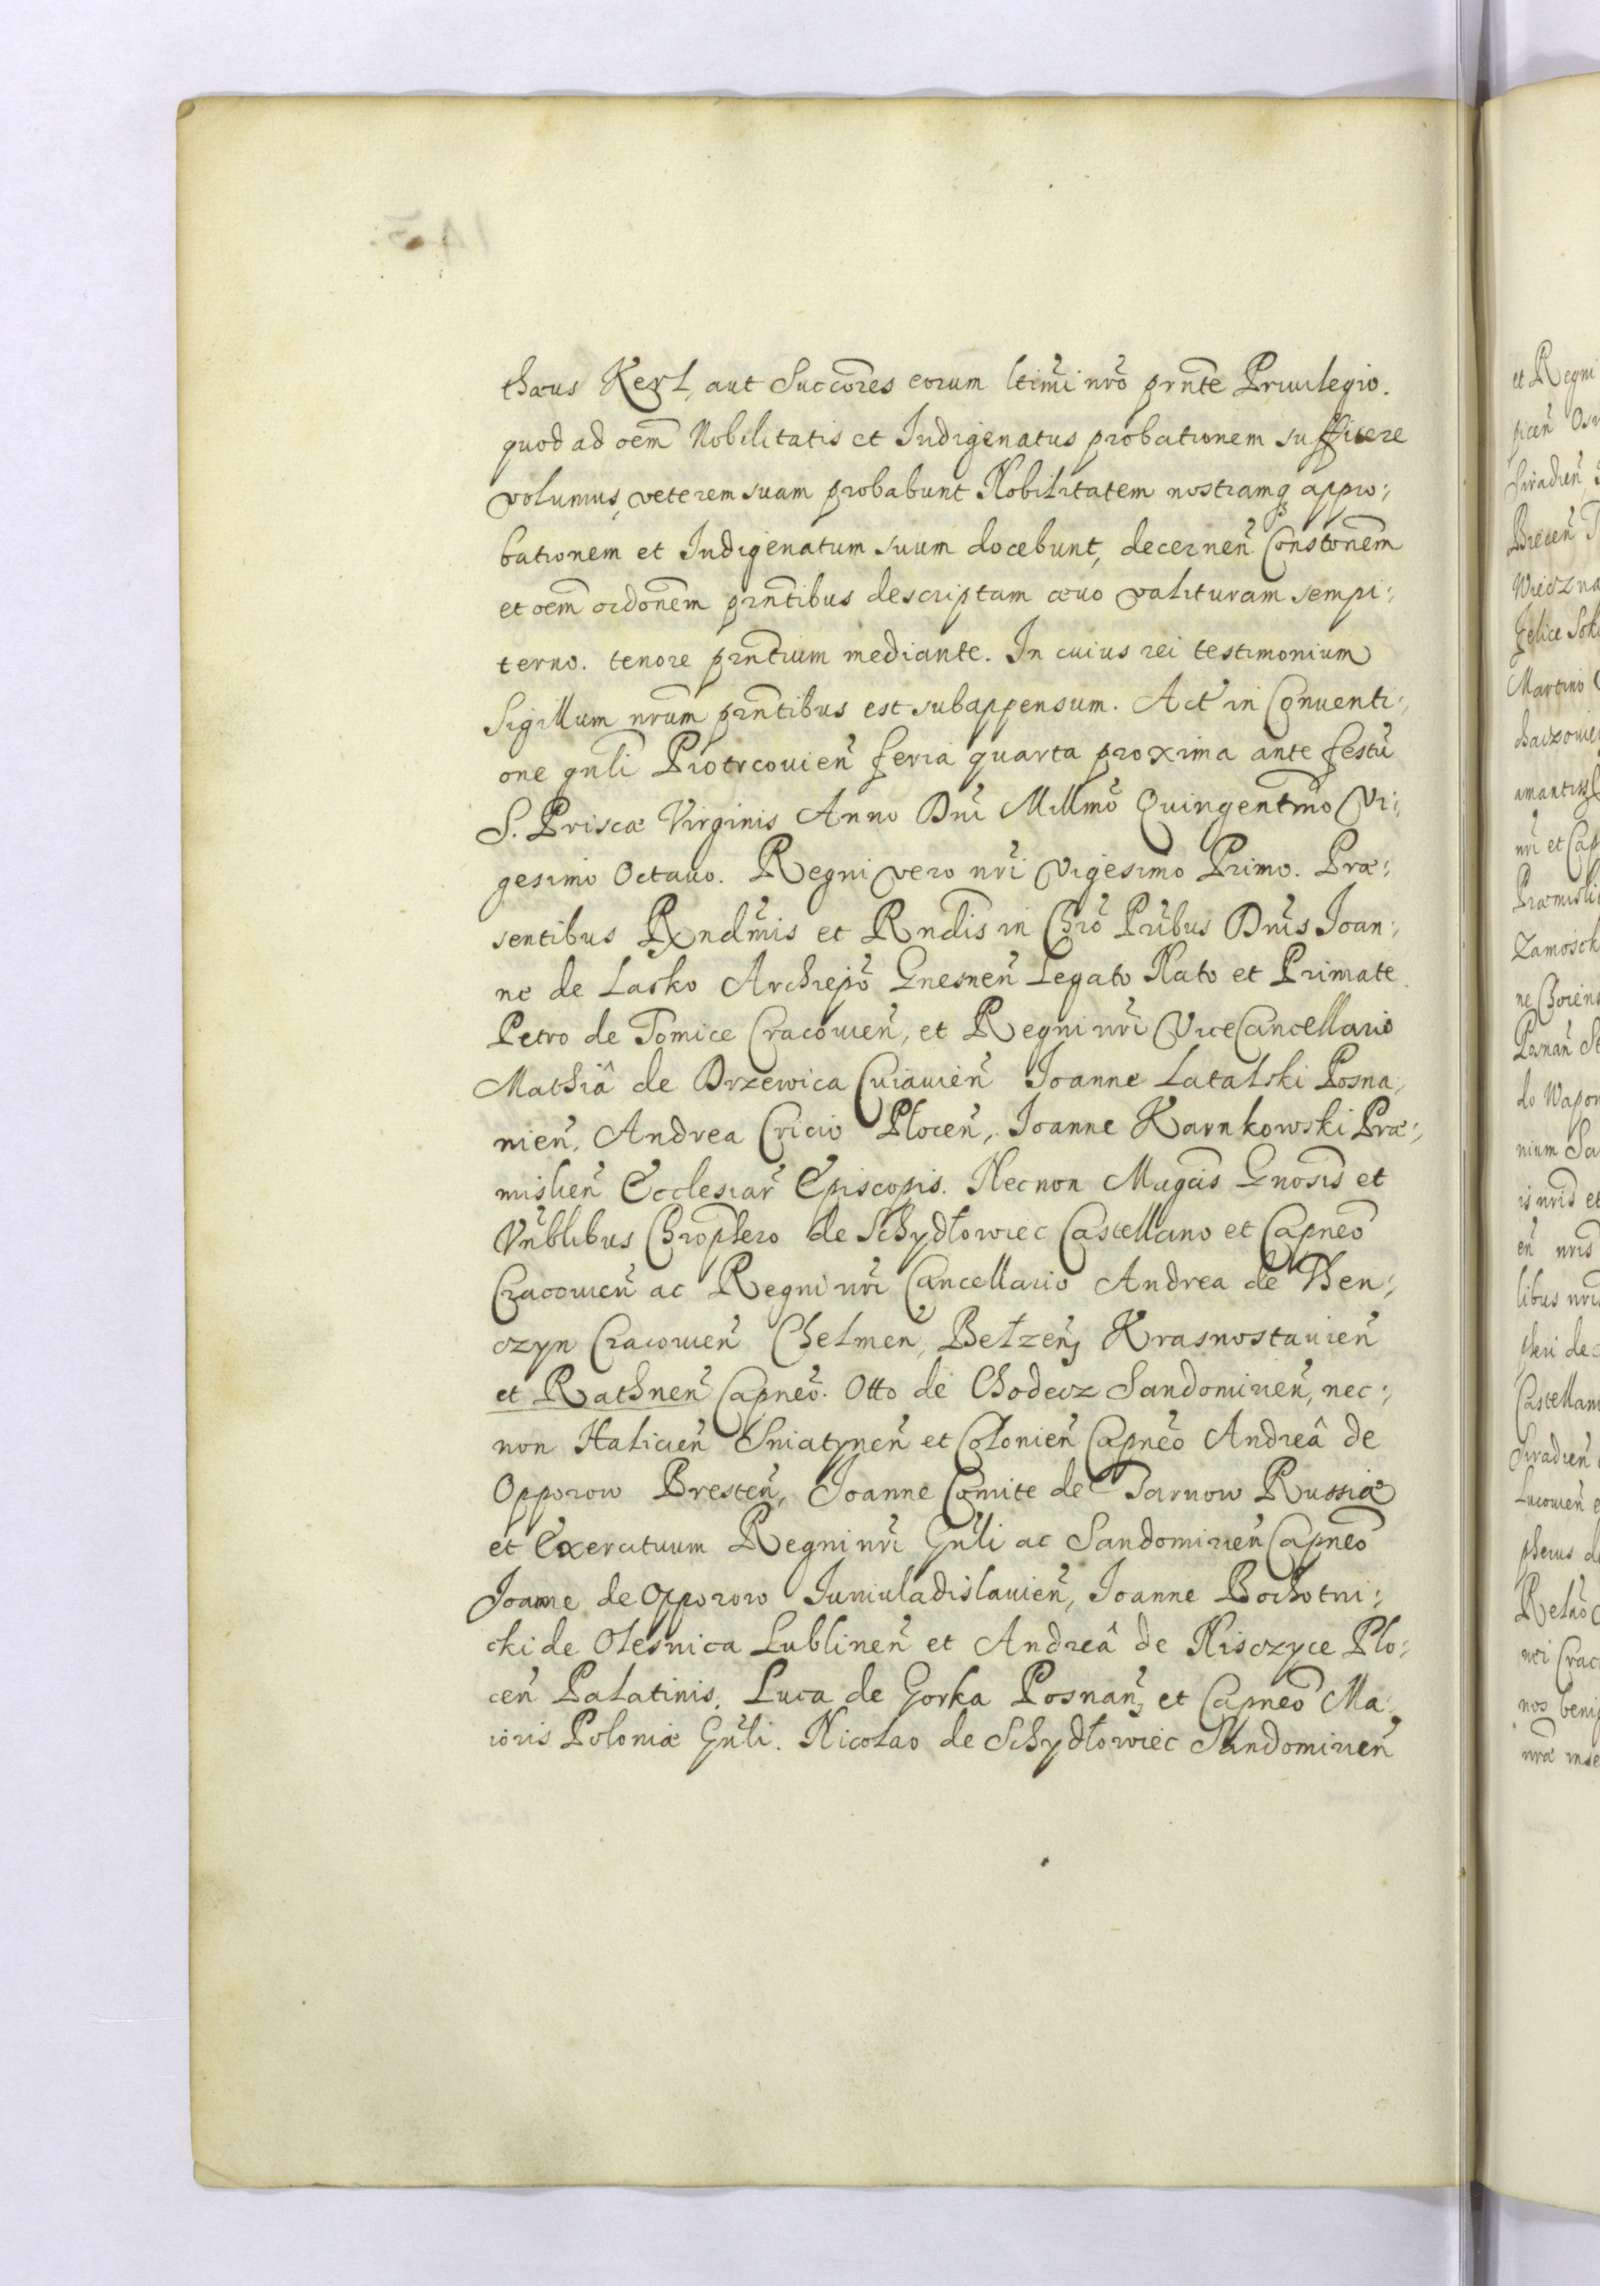 thæus Kezl, aut Succōres eorum ltimi nrō prnte Priuilegio.
quod ad oem Nobilitatis et Indigenatus probationem sufficere
volumus, veterem suam probabunt Nobilitatem nostramq appro:
bationem et Indigenatum suum docebunt, decernen Constonem
et oem ordonem prntibus descriptam æuo valituram sempi:
terno. tenore prntium mediante. In cuius rei testimonium
Sigillum nrum prntibus est subappensum. Act in Conuenti:
one gnli Piotrcouien feria quarta proxima ante festu
S. Priscæ Virginis Anno Dni Millmo Quingentmo Vi:
gesimo Octauo. Regni vero nri Vigesimo Primo. Præ:
sentibus Rxndmis et Rndis in Chro Pribus Dnis Ioan:
ne de Lasko Archiepo Gnesnen Legato Nato et Primate
Petro de Tomice Cracouien, et Regni nri ViceCancellario
Mathiâ de Drzewica Cuiauien Ioanne Latalski Posna:
nien, Andrea Cricio Plocen, Ioanne Karnkowski Præ:
mislien Ecclesiar Episcopis. Necnon Magcis Gnosis et
Vnblibus Chrophero de Schydłowiec Castellano et Capneo
Cracouien ac Regni nri Cancellario Andrea de Then:
czyn Cracouien Chelmen, Bełzen, Krasnostauien
et Rathnen Capneo. Otto de Chodecz Sandomirien, nec:
non Halicien Sniatynen et Colonien Capneo Andreâ de
Opporow Bresten, Ioanne Comite de Tarnow Russiæ
et Exercituum Regni nri Gnli ac Sandomirien Capneo
Ioanne de Opporow Iuniuladislauien, Ioanne Bochotni:
cki de Olesnica Lublinen et Andreâ de Nisczyce Plo:
cen Palatinis. Luca de Gorka Posnan, et Capneo Ma:
ioris Poloniæ Gnli. Nicolao de Schydłowiec Sandomirien